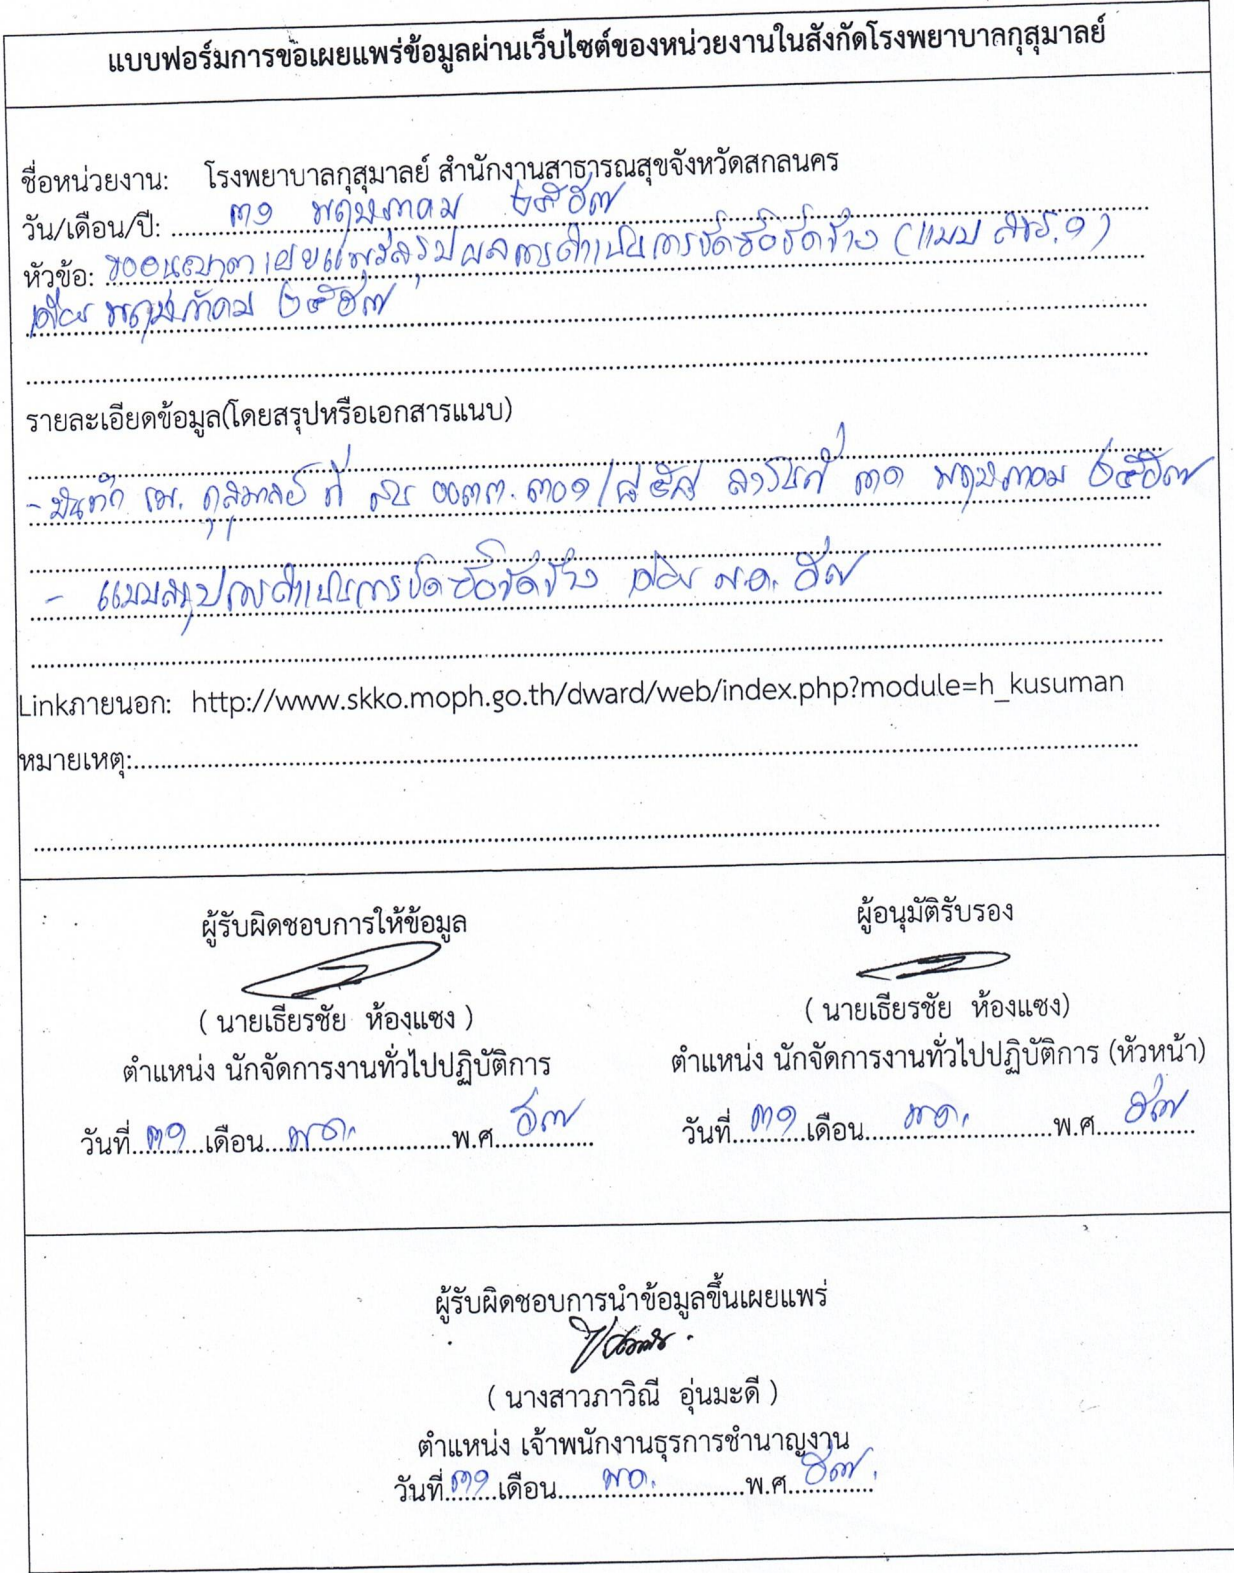 แบบฟอร์มการขอเผยแพร่ข้อมูลผ่านเว็บไซต์ของหน่วยงานในสังกัดโรงพยาบาลกุสุมาลย์
ชื่อหน่วยงาน: โรงพยาบาลกุสุมาลย์ สำนักงานสาธารณสุขจังหวัดสกลนคร
วัน/เดือน/ปี: ๓๑ พฤษภาคม ๒๕๖๗
หัวข้อ: ขออนุญาตเผยแพร่สรุปผลการดำเนินการจัดซื้อจัดจ้าง (แบบ สขร.๑)
เดือน พฤษภาคม ๒๕๖๗
รายละเอียดข้อมูล(โดยสรุปหรือเอกสารแนบ)
- บันทึก รพ. กุสุมาลย์ ที่ สน ๐๐๓๓.๓๐๑/๘๕๘ ลงวันที่ ๓๑ พฤษภาคม ๒๕๖๗
- แบบสรุปการดำเนินการจัดซื้อจัดจ้าง เดือน พ.ค. ๖๗
Linkภายนอก: http://www.skko.moph.go.th/dward/web/index.php?module=h_kusuman
หมายเหตุ:
ผู้รับผิดชอบการให้ข้อมูล
( นายเธียรชัย ห้องแซง )
ตำแหน่ง นักจัดการงานทั่วไปปฏิบัติการ
วันที่ ๓๑ เดือน พ.ค. พ.ศ. ๖๗
ผู้อนุมัติรับรอง
( นายเธียรชัย ห้องแซง)
ตำแหน่ง นักจัดการงานทั่วไปปฏิบัติการ (หัวหน้า)
วันที่ ๓๑ เดือน พ.ค. พ.ศ. ๖๗
ผู้รับผิดชอบการนำข้อมูลขึ้นเผยแพร่
( นางสาวภาวิณี อุ่นมะดี )
ตำแหน่ง เจ้าพนักงานธุรการชำนาญงาน
วันที่ ๓๑ เดือน พ.ค. พ.ศ. ๖๗